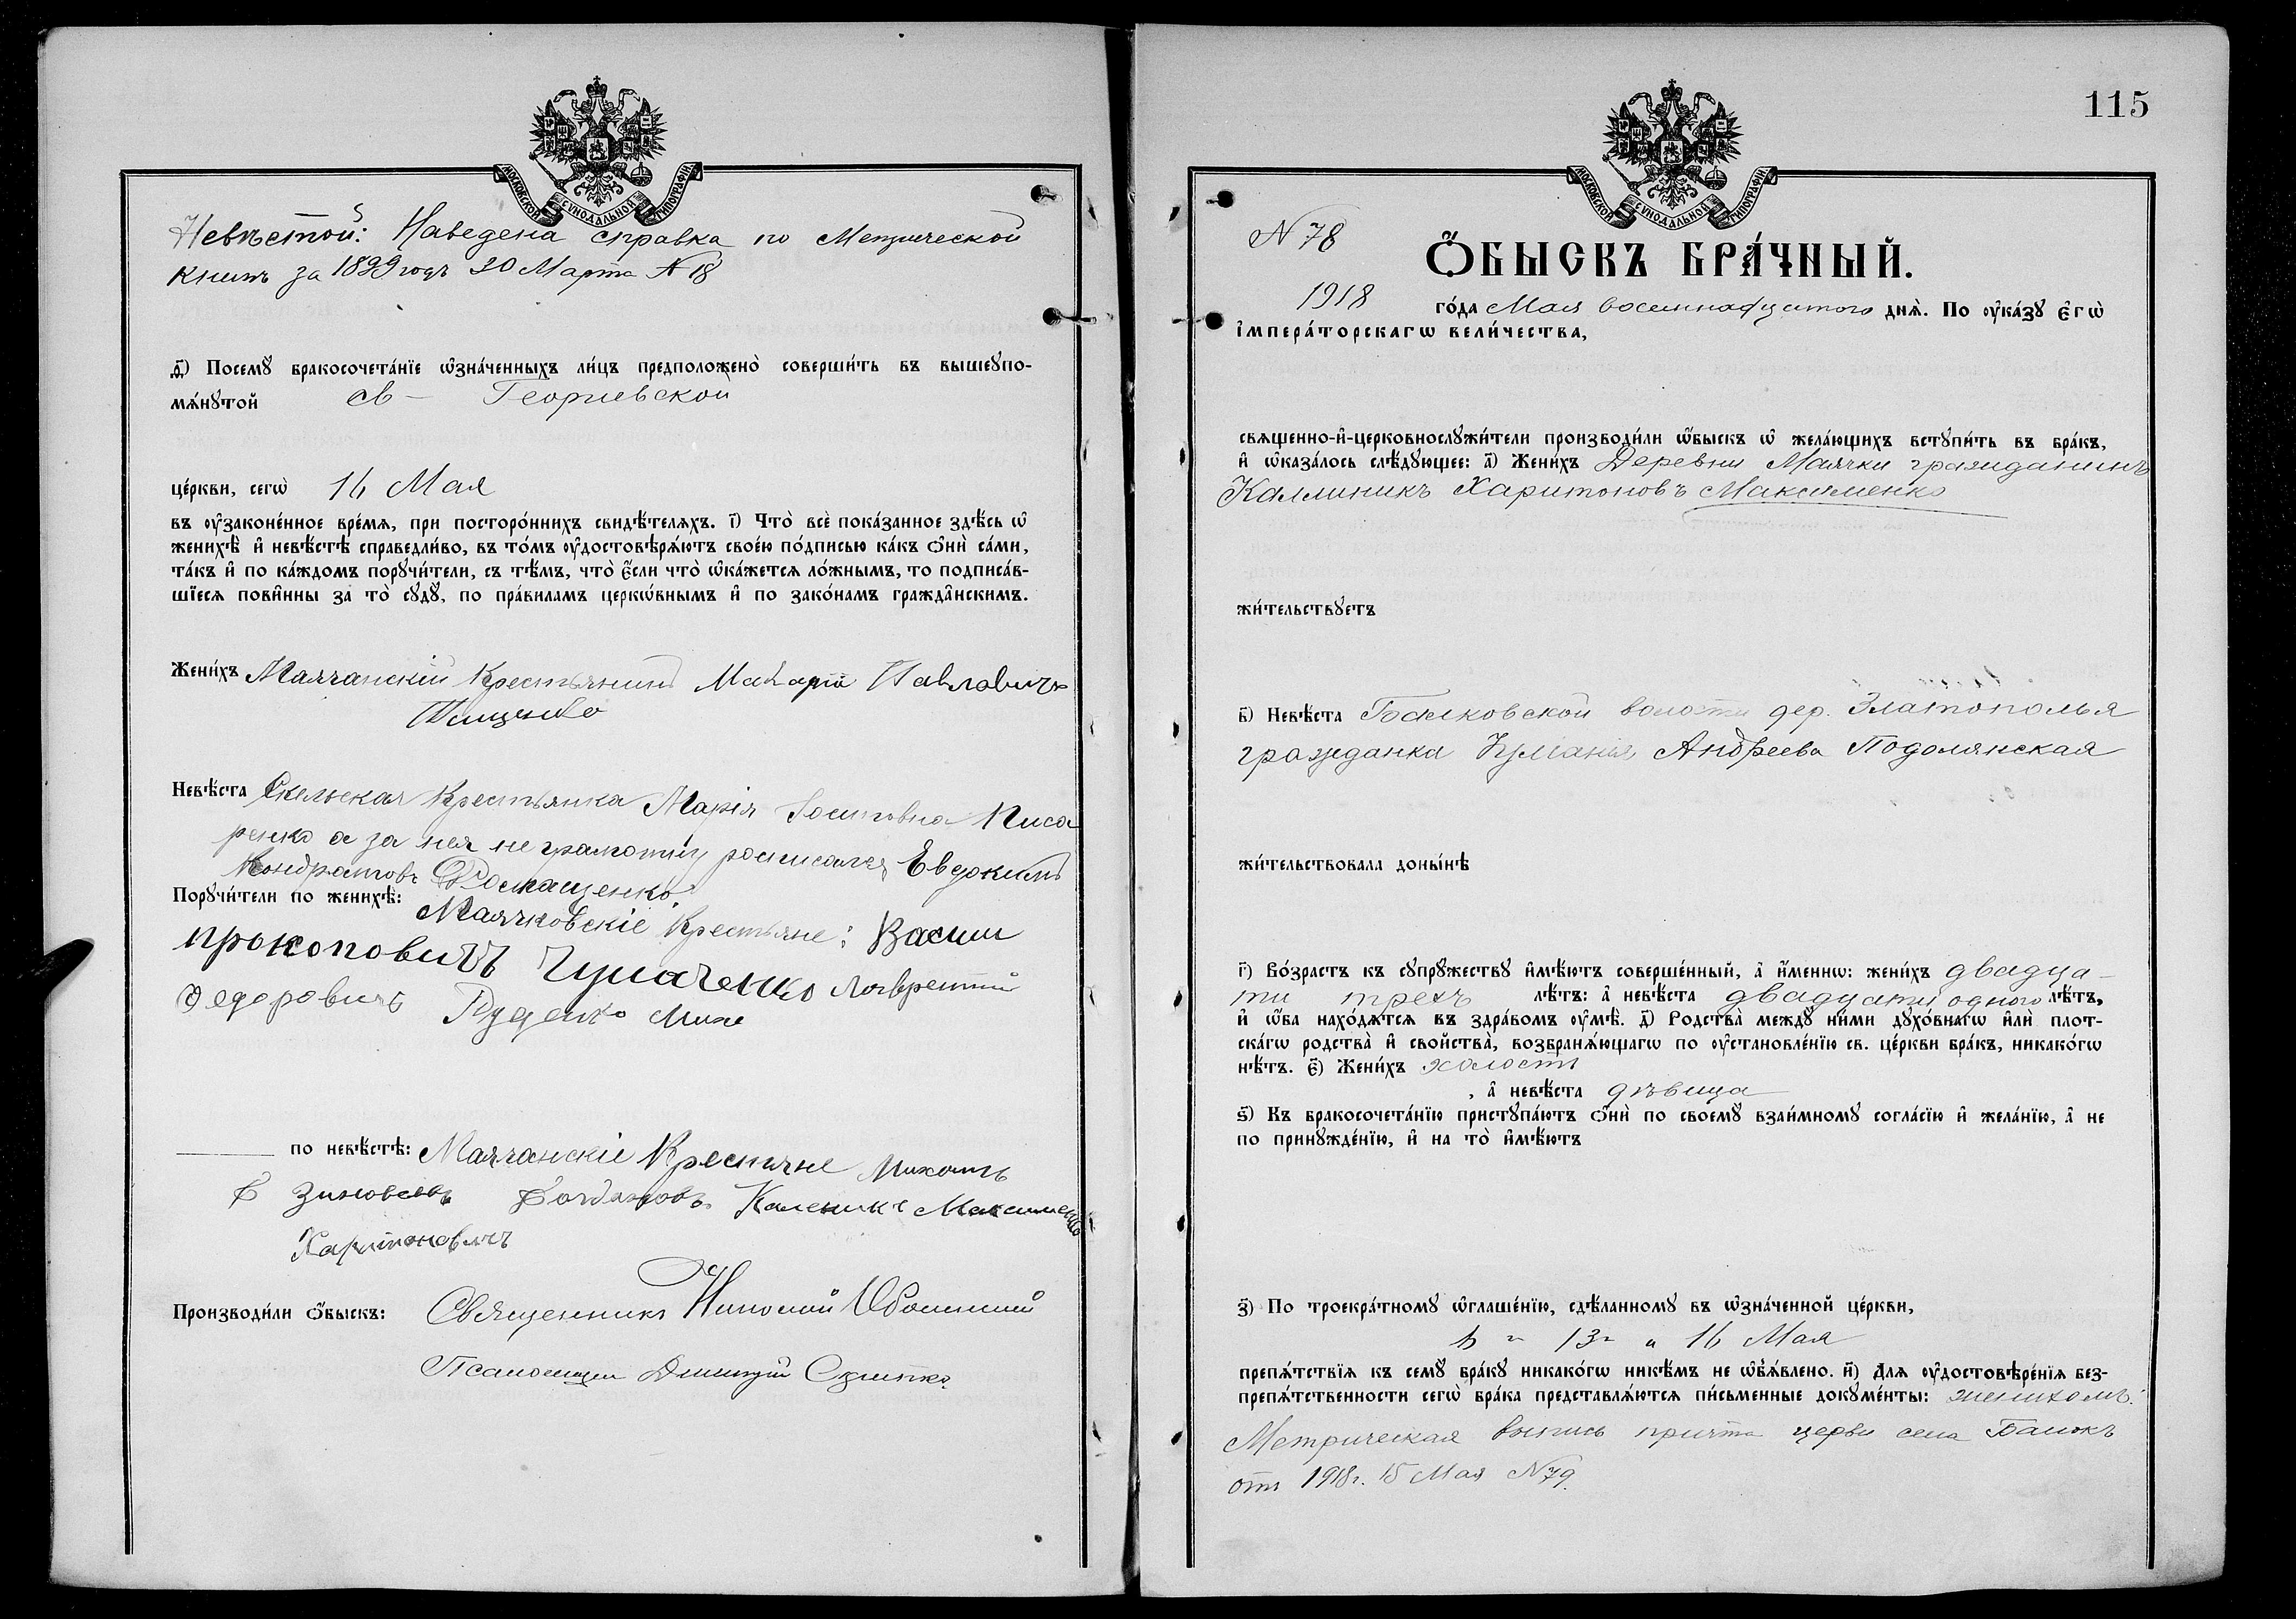 МОСКОВСКОЙ СѴНОДАЛЬНОЙ ТИПОГРАФІИ
Невѣстой: Наведена справка по Метрической
книгѣ за 1899 годъ 20 Марта № 18
д҃) Посемꙋ бракосочета́нїе ѡ҆зна́ченныхъ ли́цъ предположено̀ соверши́ть въ вышеꙋпо-
мѧ́нꙋтой св- Георгиевской
це́ркви, сегѡ̀ 16 Мая
въ оу҆законе́нное вре́мѧ, при посторо́ннихъ свидѣ́телѧхъ. і҃) Что̀ всѐ пока́занное здѣ́сь ѡ҆
женихѣ̀ и҆ невѣ́стѣ справедли́во, въ то́мъ оу҆достовѣрѧ́ютъ свое́ю по́дписью ка́къ ѻ҆нѝ са́ми,
та́къ и҆ по ка́ждомъ порꙋчи́тели, съ тѣ́мъ, что̀ є҆́сли что̀ ѡ҆ка́жетсѧ ло́жнымъ, то подписа́в-
шїесѧ пови́нны за то̀ сꙋдꙋ̀, по пра́виламъ церкѡ́внымъ и҆ по зако́намъ гражда́нскимъ.
Жени́хъ Маячанскій Крестьянинъ Макарій Павловичъ
Тищенко
Невѣ́ста Скельская Крестьянка Марія Іосиповна Писа
ренко а за нея не грамотну росписался Евдокимъ
Кондратовъ Ромащенко.
Порꙋчи́тели по женихѣ̀: Маячковскіе Крестьяне: Васили
прокоповичъ Чумаченко Лаврентий
Федоровичъ Руденко Михе
по невѣ́стѣ: Маячанскіе Крестьяне Михаилъ
Б Зиновеевъ Богдановъ Каленикъ Максименко
Харитоновичъ
Производи́ли ѻ҆́быскъ: Священникъ Николай
Псаломщик Дмитрій Скрипка.
115
МОСКОВСКОЙ СѴНОДАЛЬНОЙ ТИПОГРАФІИ
N 78
Ѻ҆́БЫСКЪ БРА́ЧНЫЙ.
1918 го́да Мая восемнадцатого днѧ̀. По оу҆ка́зꙋ є҆гѡ̀
і҆мпера́торскагѡ вели́чества,
свѧщенно-и҆-церковнослꙋжи́тели производи́ли ѡ҆́быскъ ѡ҆ жела́ющихъ встꙋпи́ть въ бра́къ,
и҆ ѡ҆каза́лось слѣ́дꙋющее: а҃) Жени́хъ Деревни Маячки гражданинъ
Каллиникъ Харитоновъ Максименко
жи́тельствꙋетъ
в҃) Невѣ́ста Балковской волости дер. Златополья
гражданка Іуліанія Андреева Подолянская
жи́тельствовала доны́нѣ
г҃) Во́зрастъ къ сꙋпрꙋ́жествꙋ и҆мѣ́ютъ соверше́нный, а҆ и҆́менно: жени́хъ двадца-
ти трехъ лѣ́тъ: а҆ невѣ́ста двадцати одного лѣ́тъ,
и҆ ѡ҆́ба нахо́дѧтсѧ въ здра́вомъ оу҆мѣ̀. д҃) Родства̀ междꙋ̀ ни́ми дꙋхо́внагѡ и҆лѝ плот-
ска́гѡ родства̀ и҆ свойства̀, возбранѧ́ющагѡ по оу҆становле́нїю св. це́ркви бра́къ, никако́гѡ
нѣ́тъ. є҃) Жени́хъ холостъ
, а҆ невѣ́ста дѣвица
ѕ҃) Къ бракосочета́нїю пристꙋпа́ютъ ѻ҆нѝ по своемꙋ̀ взаи́мномꙋ согла́сїю и҆ жела́нїю, а҆ не
по принꙋжде́нїю, и҆ на то̀ и҆мѣ́ютъ
з҃) По троекра́тномꙋ ѡ҆глаше́нїю, сдѣ́ланномꙋ въ ѡ҆зна́ченной це́ркви,
13 и 16 Мая
препѧ́тствїѧ къ семꙋ̀ бра́кꙋ никако́гѡ никѣ́мъ не ѡ҆б̾ѧ́влено. и҃) Длѧ оу҆достовѣре́нїѧ без-
препѧ́тственности сегѡ̀ бра́ка представлѧ́ютсѧ пи́сьменные докꙋме́нты: женихомъ:
Метрическая выпись причта церкви села Балокъ
отъ 1918 г. 15 Мая N 79.